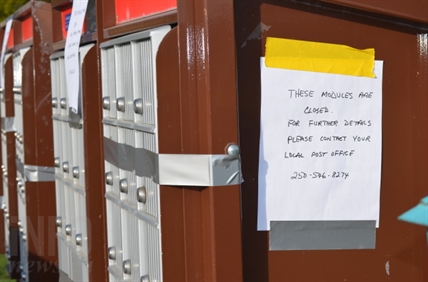 THESE MODULES ARE
CLOSED.
FOR FURTHER DETAILS
PLEASE CONTACT YOUR
LOCAL POST OFFICE
250-546-8274